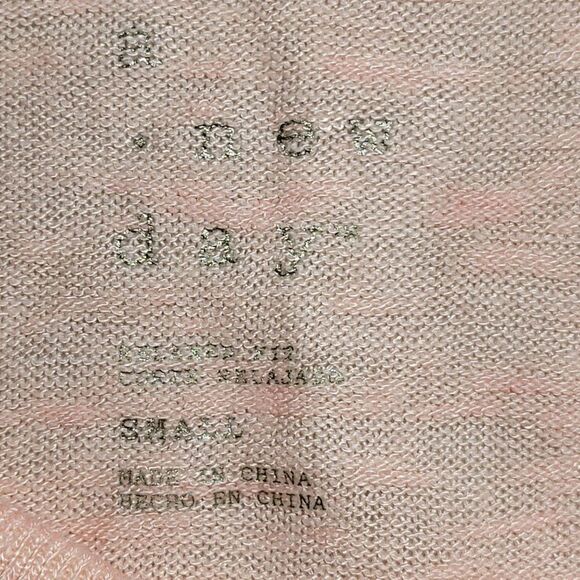 a
· new
day™
RELAXED FIT
CORTE RELAJADO
SMALL
MADE IN CHINA
HECHO EN CHINA